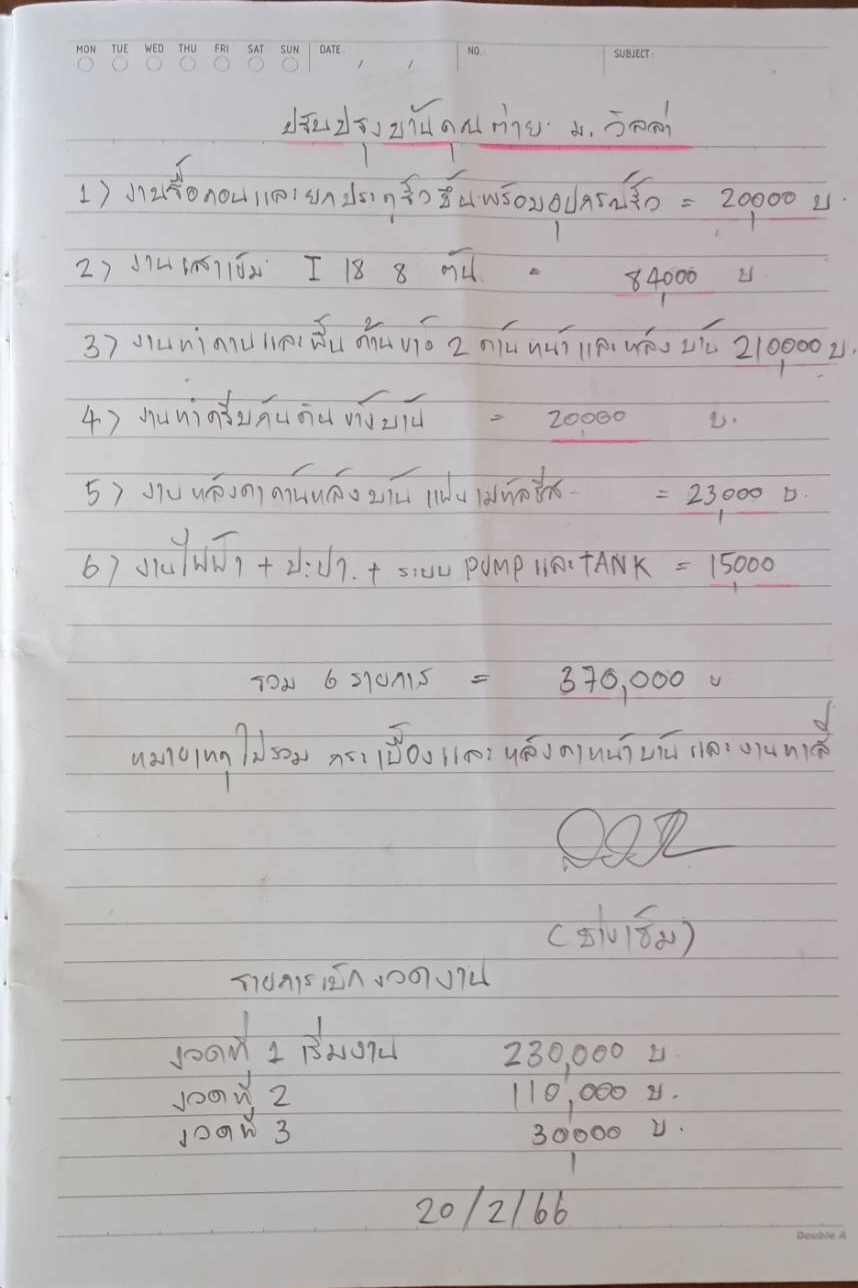 MON TUE WED THU FRI SAT SUN DATE / / NO. SUBJECT
ปรับปรุงบ้านคุณต่าย ม. วิลล่า
1) งานรื้อถอนและยกประตูรั้วขึ้นพร้อมอุปกรณ์รั้ว = 20,000 บ.
2) งานเสาเข็ม I 18 8 ต้น = 84,000 บ
3) งานทำคานและพื้น ด้านข้าง 2 ด้านหน้าและหลังบ้าน 210,000 บ.
4) งานทำครีบกันดินข้างบ้าน = 20000 บ.
5) งานหลังคาด้านหลังบ้าน แผ่นเมทัลชีส = 23,000 บ.
6) งานไฟฟ้า + ปะปา. + ระบบ PUMP และ TANK = 15,000
รวม 6 รายการ = 370,000 บ
หมายเหตุ ไม่รวม กระเบื้องและหลังคาหน้าบ้าน และงานทาสี
(ช่างเชิม)
รายการเบิกงวดงาน
งวดที่ 1 เริ่มงาน 230,000 บ.
งวดที่ 2 110,000 บ.
งวดที่ 3 30,000 บ.
20/2/66
Double A